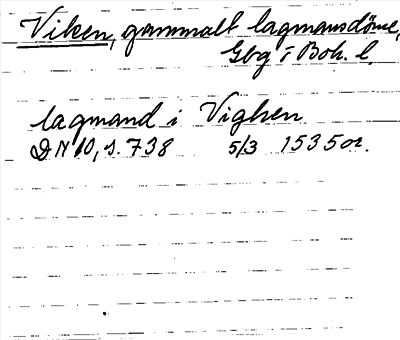 Viken, gammalt lagmansdöme,
Gbg o Boh. l.
lagmand i Vighen
DN 10, s. 738 5/3 1535 or.